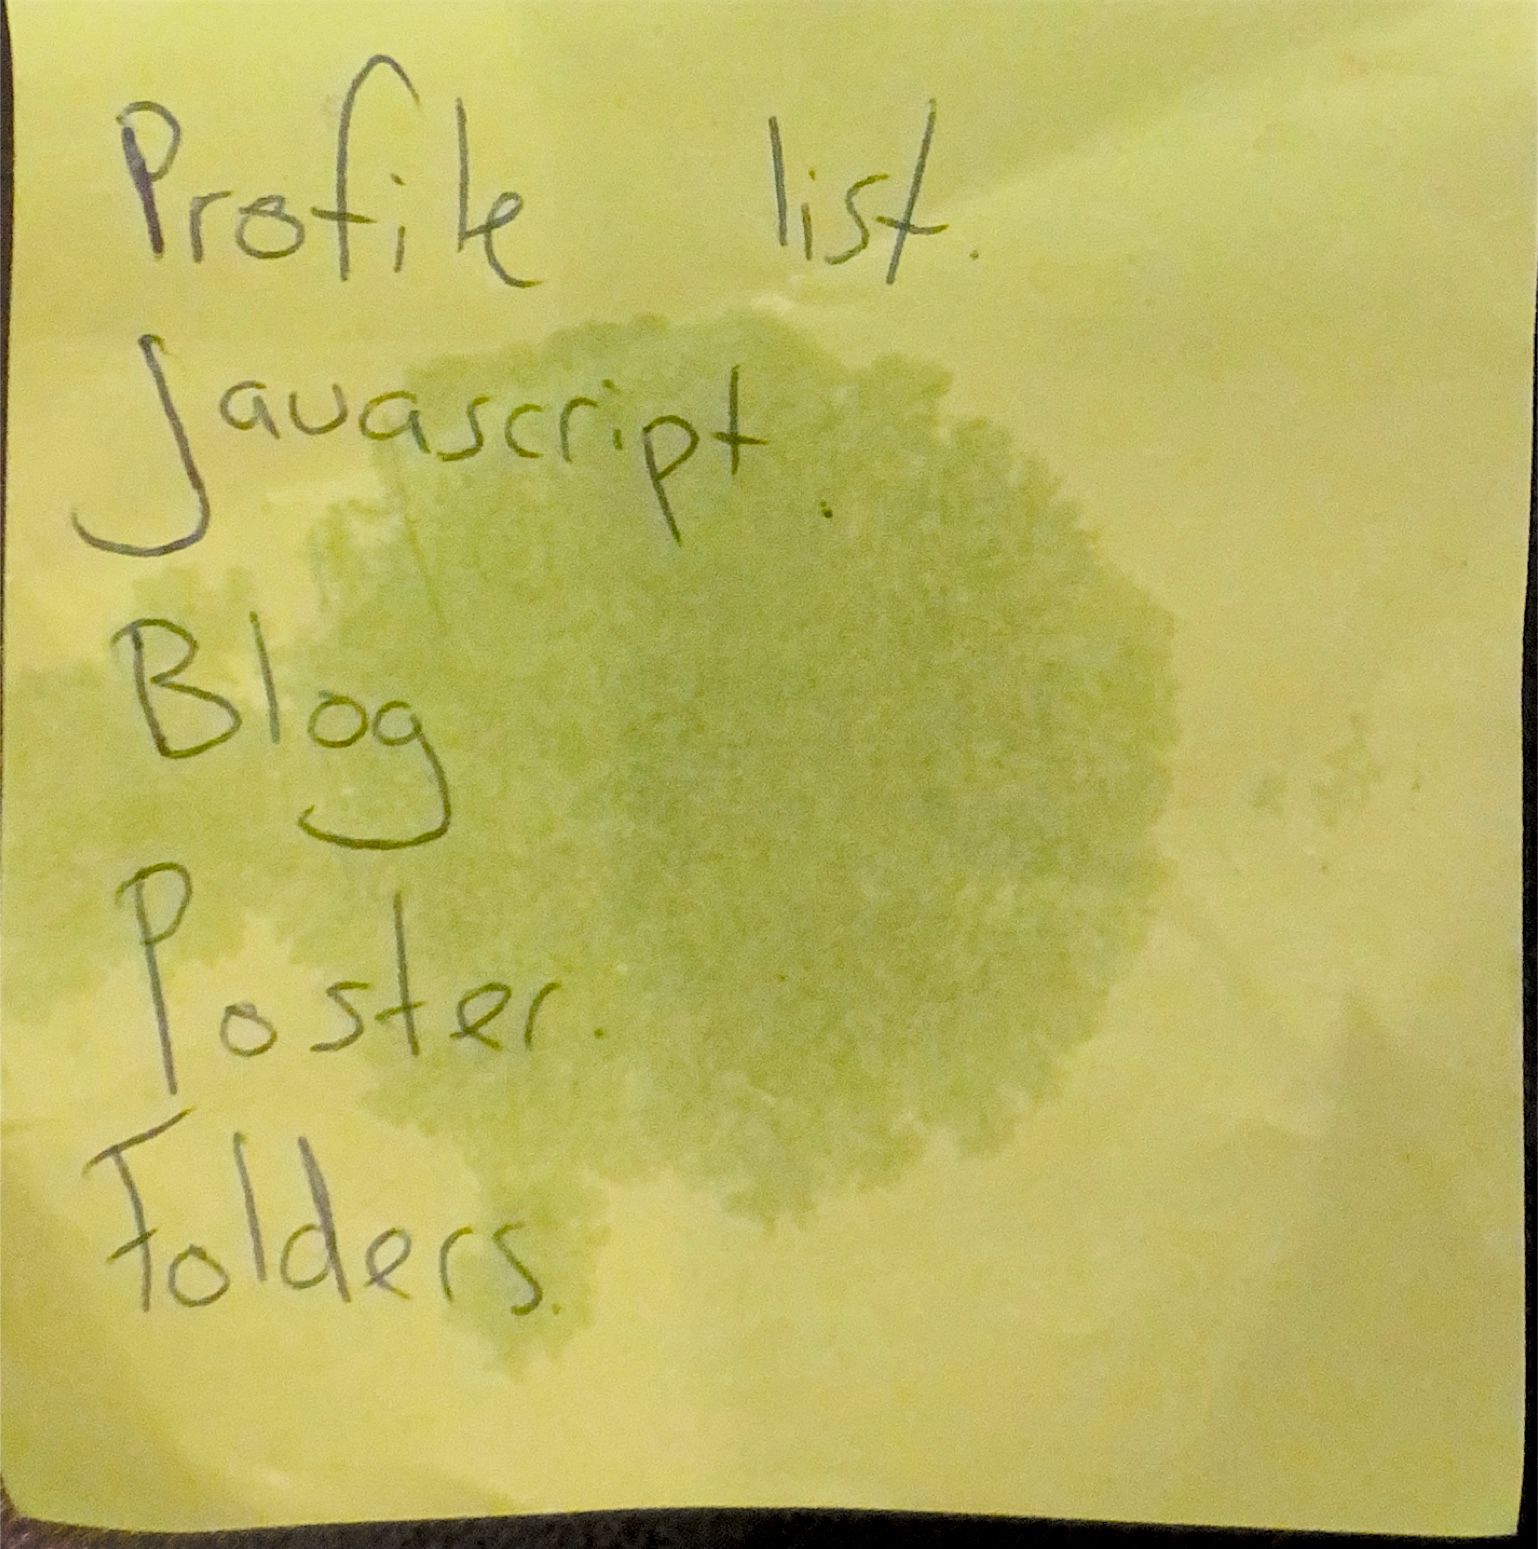 Profile list.
Javascript.
Blog
Poster.
Folders.